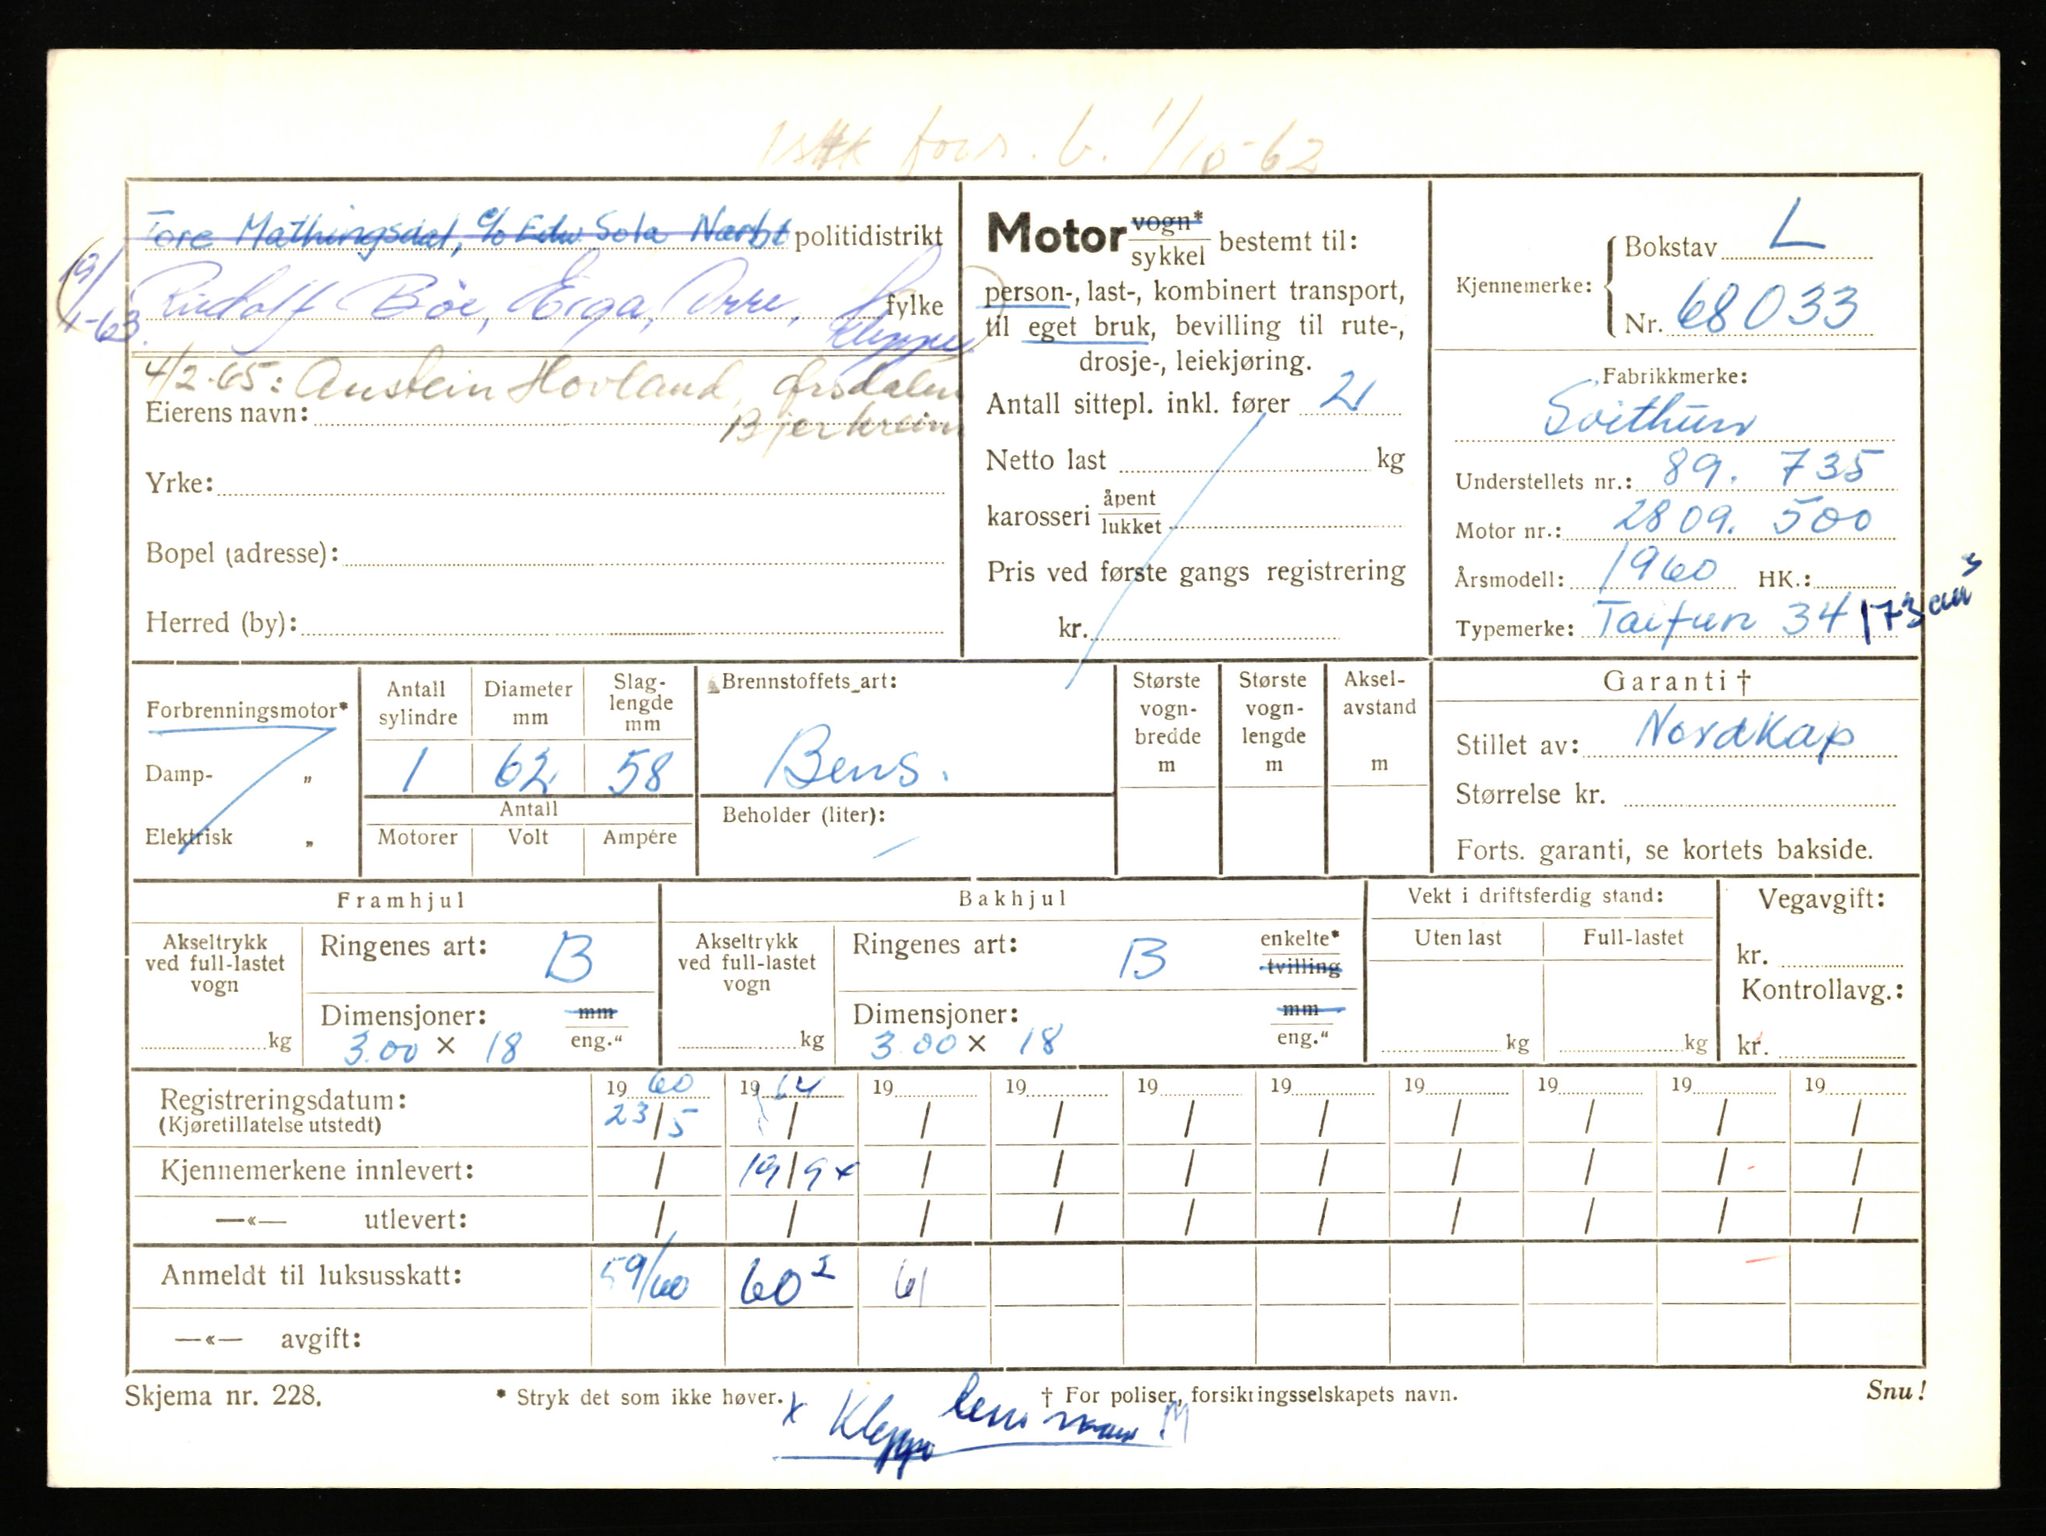 fors. b. 1/10-62
Tore Mathingsdal, c/o Edw. Sola Nærbø politidistrikt
19/
1-63.
Rudolf Böe, Erga, Orre, fylke
Kleppe
4/2-65: Austein Hovland, Ørsdalen
Eierens navn: Bjerkreim
Yrke:
Bopel (adresse):
Herred (by):
Motor vogn*
sykkel bestemt til:
person-, last-, kombinert transport,
til eget bruk, bevilling til rute-,
drosje-, leiekjøring.
Antall sittepl. inkl. fører 2
Netto last kg
karosseri åpent
lukket
Pris ved første gangs registrering
kr.
Kjennemerke: Bokstav L
Nr. 68033
Fabrikkmerke:
Svithun
Understellets nr.: 89. 735
Motor nr.: 2809. 500
Årsmodell: 1960 HK.:
Typemerke: Taifun 34 173 cm³
Forbrenningsmotor*
Damp- „
Elektrisk „
Antall sylindre
1
Diameter mm
62
Slag-
lengde
mm
58
Antall
Motorer Volt Ampére
Brennstoffets art:
Bens.
Beholder (liter): —
Største
vogn-
bredde
m
Største
vogn-
lengde
m
Aksel-
avstand
m
Garanti †
Stillet av: Nordkap
Størrelse kr.
Forts. garanti, se kortets bakside.
Framhjul
Akseltrykk
ved full-lastet
vogn
kg
Ringenes art: B
Dimensjoner: mm
3.00 x 18 eng.“
Bakhjul
Akseltrykk
ved full-lastet
vogn
kg
Ringenes art: B enkelte*
tvilling
Dimensjoner: mm
3.00 x 18 eng.“
Vekt i driftsferdig stand:
Uten last Full-lastet
kg kg
Vegavgift:
kr.
Kontrollavg.:
kr.
19 60 19 64 19 19 19 19 19 19 19 19
Registreringsdatum: 23/5 / / / / / / / / /
(Kjøretillatelse utstedt)
Kjennemerkene innlevert: / 19/9 x / / / / / / / /
—«— utlevert: / / / / / / / / / /
Anmeldt til luksusskatt: 59/60 60² 61
—«— avgift:
Skjema nr. 228. * Stryk det som ikke høver. † For poliser, forsikringsselskapets navn. Snu!
x Kleppe lensmann